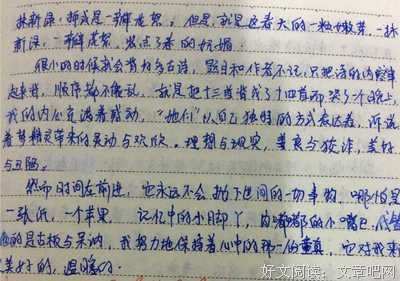 抹新绿，都或是一鲜花絮；但是，就是这春天的一粒嫩芽、一抹
新绿、一鲜花絮，发点了春的妩媚。
很小的时候就会背好多古诗，题目和作者不记，只把诗的内容串
起来背，顺序都不能乱，就是把十三首背成了十四首而哭了一个晚上，
我的内心充满着感动，“她们”以自己独特的方式表达着，诉说
着梦精灵带来的灵动与欢欣。理想与现实，善良与狡诈，美好
与丑陋。
然而时间在前进，它永远不会抛下世间的一切事物，哪怕是
一张纸，一个苹果 记忆中的小脚丫，肉嘟嘟的小嘴巴，代替
她的是古板与呆讷，我努力地保持着心中的那一份童真，它对我来
美好的，温暖的。
好文阅读：文章吧网